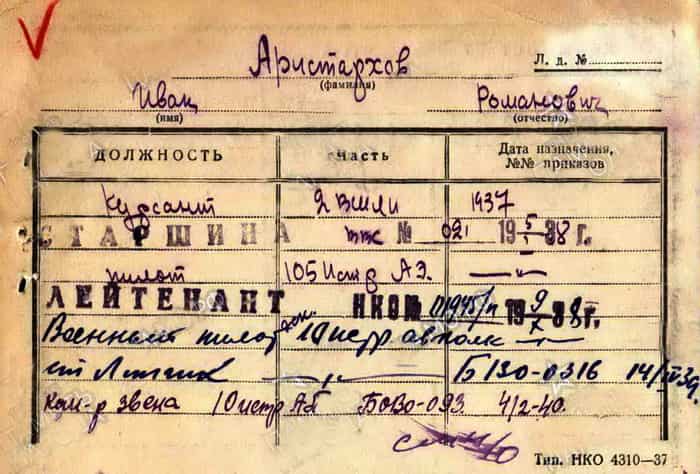 Аристархов
(фамилия)
Л. д. №
Иван Романович
(имя) (отчество)
ДОЛЖНОСТЬ Часть Дата назначения, №№ приказов
Курсант 2 ВШЛП 1937
СТАРШИНА ВВС № 021 19 5/1 38 г.
пилот 105 Истр АЭ. — " —
ЛЕЙТЕНАНТ НКО № 01945/п 19 9/ 38 г.
Военный пилот 10 истр авполк — " —
ст Летчик — " — Б 130-0316 14/IV 39
Ком-р звена 10 истр АП БОВО-093. 4/2-40.
Тип. НКО 4310—37